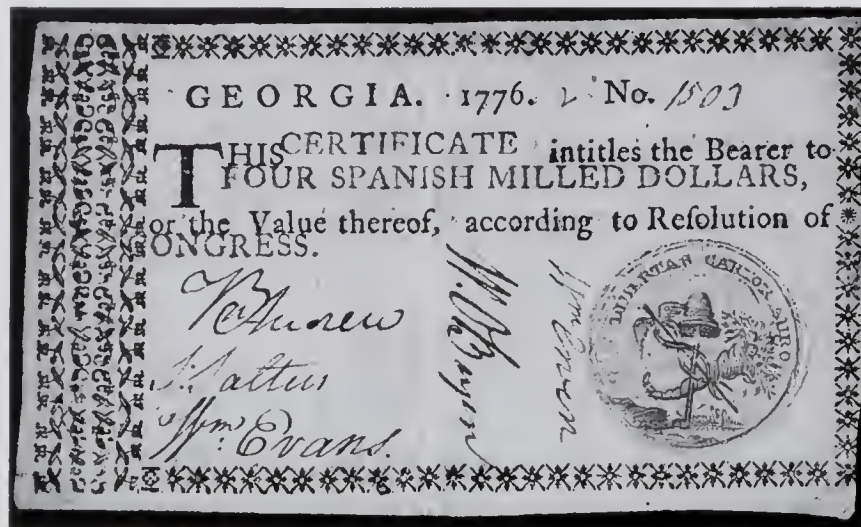 GEORGIA. 1776. No. 1503
THIS CERTIFICATE intitles the Bearer to
FOUR SPANISH MILLED DOLLARS,
or the Value thereof, according to Reſolution of
ONGRESS.
Wm. Evans.
LIBERTAS CARIOR AURO